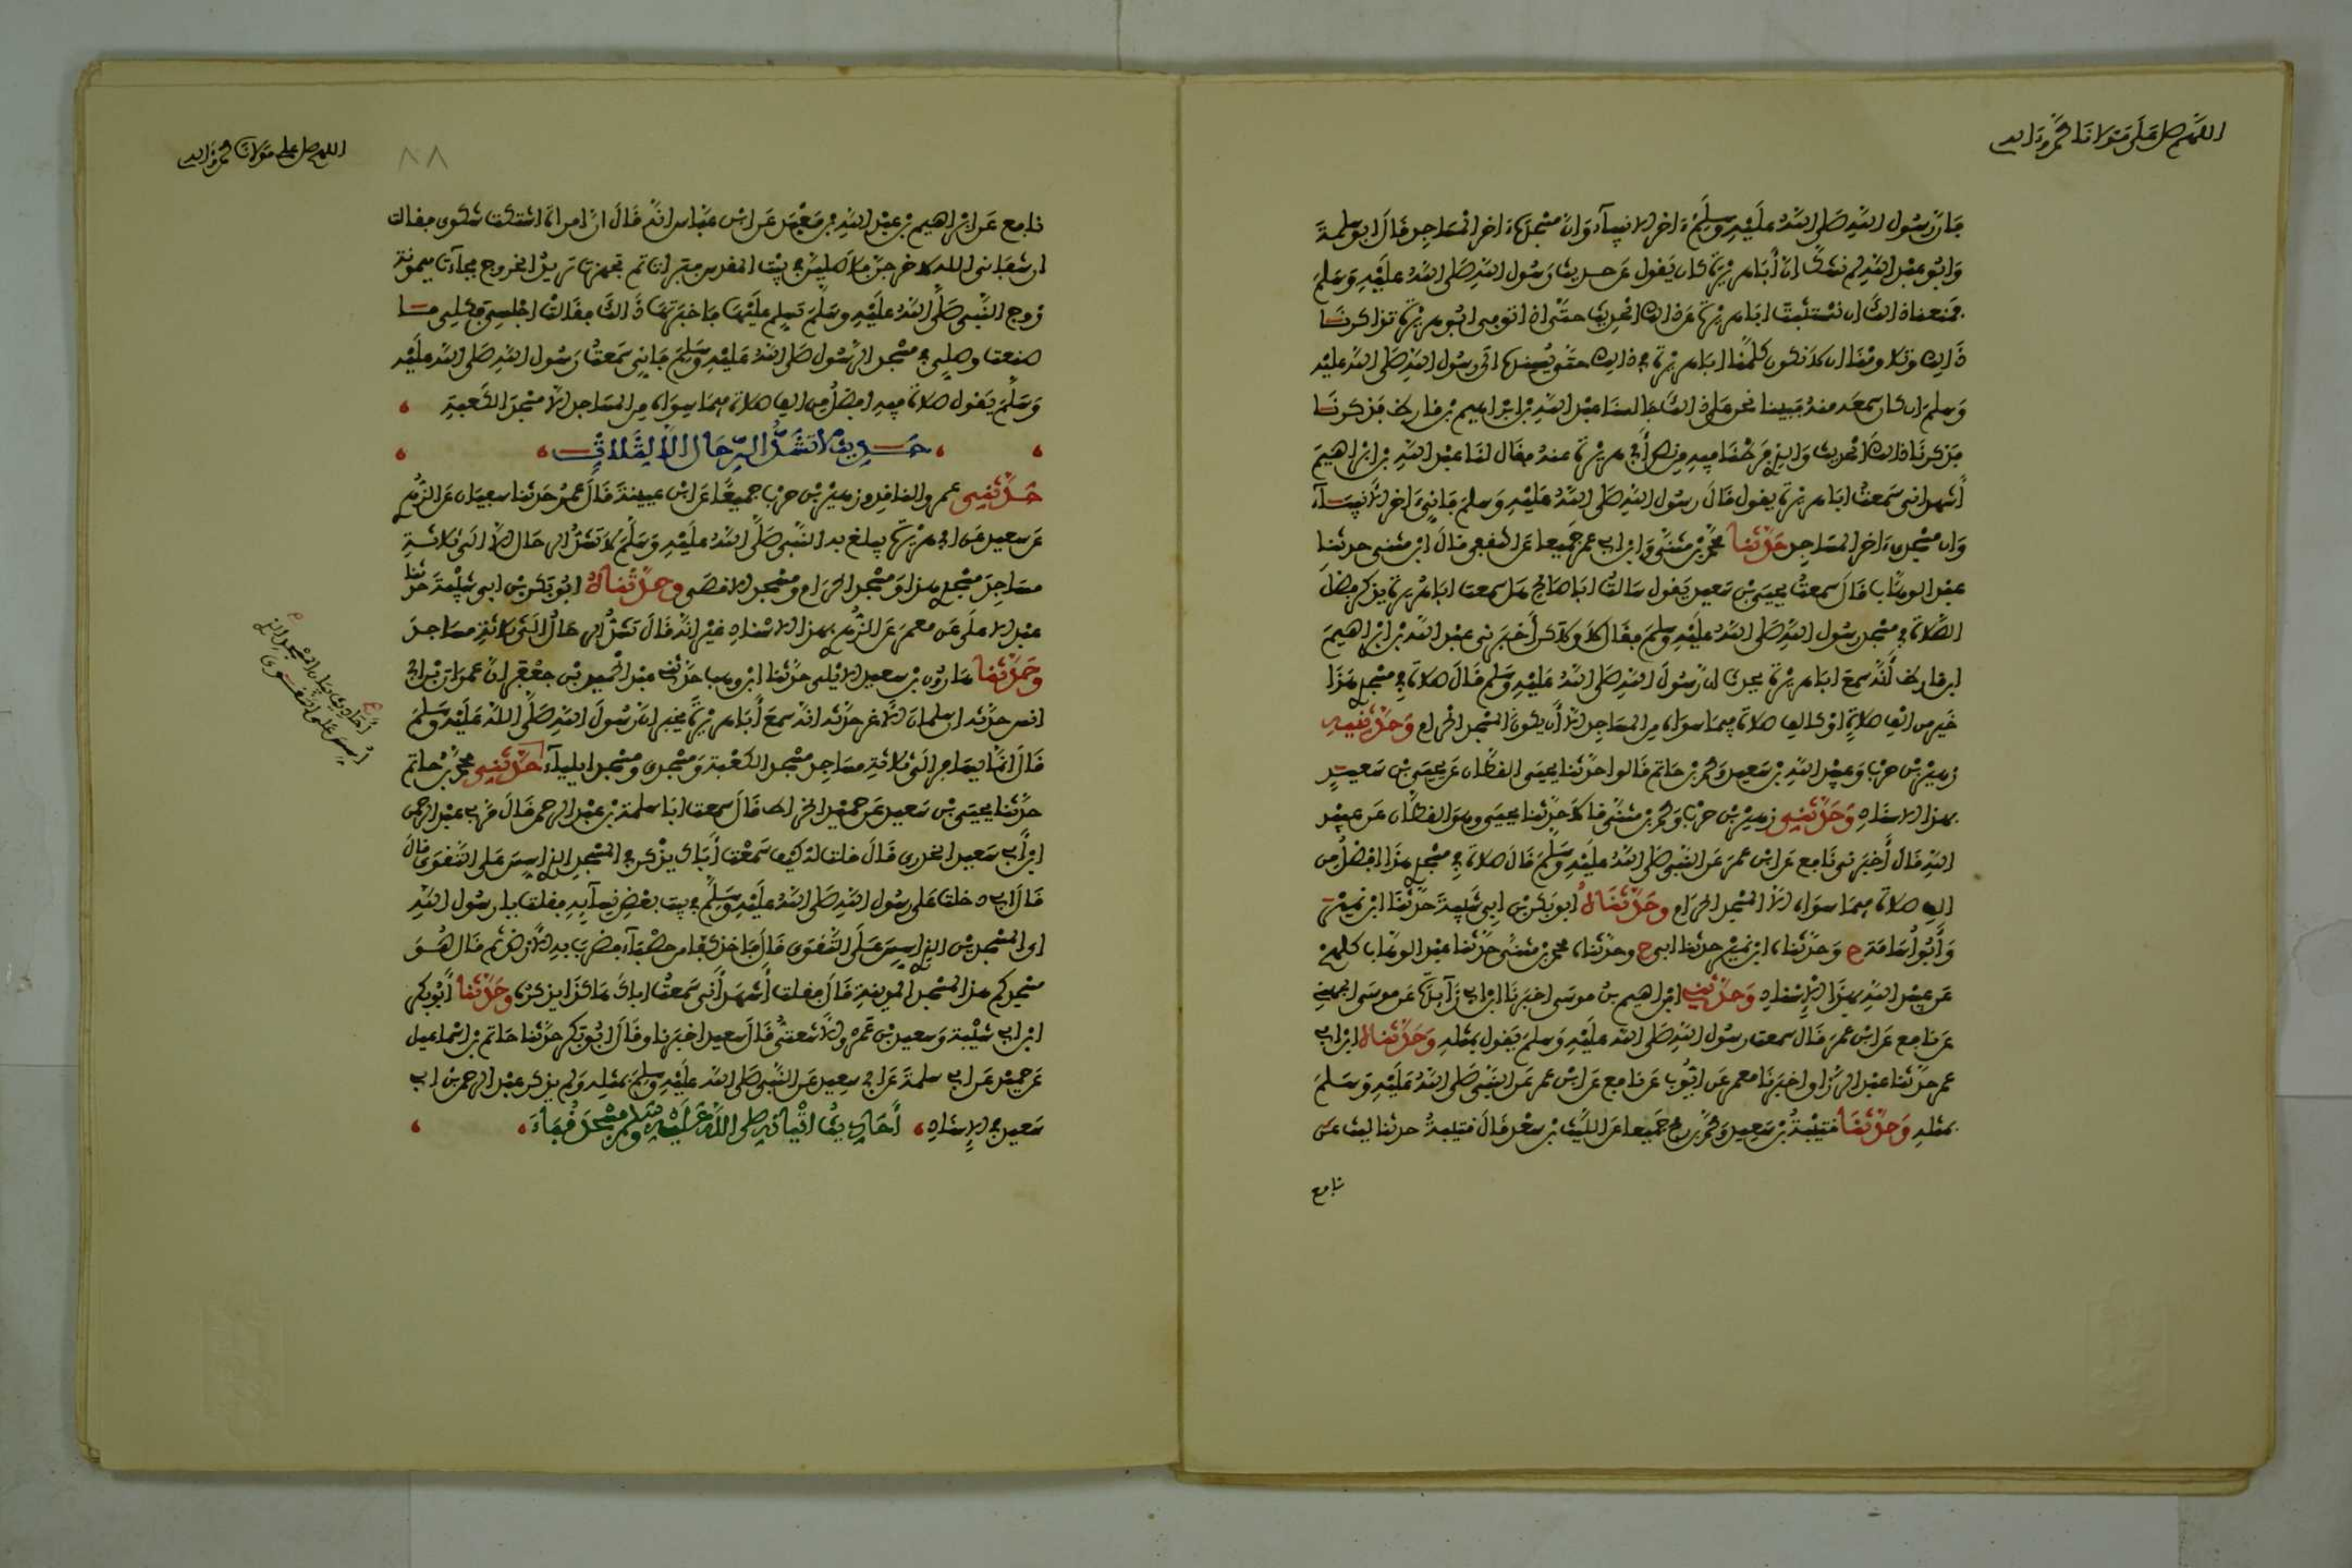 اللهم صل على مولانا محمد وءاله
فإن رسول الله صلى الله عليه وسلم ءاخر الانبياء وان مسجده ءاخر المساجد قال ابو سلمة
وابو عبد الله لم نشك ان أبا هريرة كان يقول عن حديث رسول الله صلى الله عليه وسلم
فمنعنا ذالك ان نستثبت ابا هريرة عن ذالك الحديث حتى اذا توفي ابو هريرة تذاكرنا
ذالك وتلاومنا ان لا نكون كلمنا ابا هريرة في ذالك حتى يسنده الى رسول الله صلى الله عليه
وسلم ان كان سمعه منه فبينا نحن على ذالك جالسنا عبد الله بن ابراهيم بن قارظ فذكرنا
فذكرنا ذالك الحديث والذي فرطنا فيه من نص أبي هريرة عنه فقال لنا عبد الله بن ابراهيم
أشهد اني سمعت ابا هريرة يقول قال رسول الله صلى الله عليه وسلم فإني ءاخر الانبياء
وان مسجدي ءاخر المساجد حدثنا محمد بن مثنى وابن ابي عمر جميعا عن الثقفي قال ابن مثنى حدثنا
عبد الوهاب قال سمعت يحيى بن سعيد يقول سالت ابا صالح هل سمعت ابا هريرة يذكر فضل
الصلاة في مسجد رسول الله صلى الله عليه وسلم فقال لا ولاكن أخبرني عبد الله بن ابراهيم
ابن قارظ أنه سمع ابا هريرة يحدث ان رسول الله صلى الله عليه وسلم قال صلاة في مسجدي هذا
خير من الف صلاة او كالف صلاة فيما سواه من المساجد الا أن يكون المسجد الحرام وحدثنيه
زهير بن حرب وعبيد الله بن سعيد ومحمد بن حاتم قالوا حدثنا يحيى القطان عن يحيى بن سعيد
بهذا الاسناد وحدثني زهير بن حرب ومحمد بن مثنى قالا حدثنا يحيى وهو القطان عن عبيد
الله قال أخبرني نافع عن ابن عمر عن النبي صلى الله عليه وسلم قال صلاة في مسجدي هذا افضل من
الف صلاة فيما سواه الا المسجد الحرام وحدثناه ابو بكر بن ابي شيبة حدثنا ابن نمير
وأبو أسامة ح وحدثناه ابن نمير حدثنا ابي ح وحدثناه محمد بن مثنى حدثنا عبد الوهاب كلهم
عن عبيد الله بهذا الاسناد وحدثني ابراهيم بن موسى اخبرنا ابن ابي زائدة عن موسى الجهني
عن نافع عن ابن عمر قال سمعت رسول الله صلى الله عليه وسلم يقول بمثله وحدثناه ابن ابي
عمر حدثنا عبد الرزاق اخبرنا معمر عن ايوب عن نافع عن ابن عمر عن النبي صلى الله عليه وسلم
بمثله وحدثنا قتيبة بن سعيد ومحمد بن رمح جميعا عن الليث بن سعد قال قتيبة حدثنا ليث عن
نافع
اللهم صل على مولانا محمد وءاله
٨٨
نافع عن ابراهيم بن عبد الله بن معبد عن ابن عباس انه قال ان امراة اشتكت شكوى فقالت
ان شفاني الله لاخرجن فلاصلين في بيت المقدس فبرات ثم تجهزت تريد الخروج فجاءت ميمونة
زوج النبي صلى الله عليه وسلم تسلم عليها فاخبرتها ذالك فقالت اجلسي فكلي ما
صنعت وصلي في مسجد الرسول صلى الله عليه وسلم فإني سمعت رسول الله صلى الله عليه
وسلم يقول صلاة فيه افضل من الف صلاة فيما سواه من المساجد الا مسجد الكعبة
حديث لا تشد الرحال الا لثلاث
حدثني عمرو الناقد وزهير بن حرب جميعا عن ابن عيينة قال عمرو حدثنا سفيان عن الزهري
عن سعيد عن ابي هريرة يبلغ به النبي صلى الله عليه وسلم لا تشد الرحال الا الى ثلاثة
مساجد مسجدي هذا ومسجد الحرام ومسجد الاقصى وحدثناه ابو بكر بن ابي شيبة حدثنا
عبد الاعلى عن معمر عن الزهري بهذا الاسناد غير انه قال تشد الرحال الى ثلاثة مساجد
وحدثنا هارون بن سعيد الايلي حدثنا ابن وهب حدثني عبد الحميد بن جعفر ان عمران بن ابي
انس حدثه ان سلمان الاغر حدثه انه سمع أبا هريرة يخبر ان رسول الله صلى الله عليه وسلم
قال انما يسافر الى ثلاثة مساجد مسجد الكعبة ومسجدي ومسجد ايلياء حدثني محمد بن حاتم
حدثنا يحيى بن سعيد عن حميد الخراط قال سمعت ابا سلمة بن عبد الرحمن قال مر بي عبد الرحمن
ابن أبي سعيد الخدري قال قلت له كيف سمعت أباك يذكر في المسجد الذي اسس على التقوى قال
قال ابي دخلت على رسول الله صلى الله عليه وسلم في بيت بعض نسائه فقلت يا رسول الله
اي المسجدين الذي اسس على التقوى قال فاخذ كفا من حصباء فضرب به الارض ثم قال هو
مسجدكم هذا المسجد المدينة قال فقلت أشهد أني سمعت اباك هاكذا يذكره وحدثنا أبو بكر
ابن ابي شيبة وسعيد بن عمرو الاشعثي قال سعيد اخبرنا وقال ابو بكر حدثنا حاتم بن اسماعيل
عن حميد عن ابي سلمة عن ابي سعيد عن النبي صلى الله عليه وسلم بمثله ولم يذكر عبد الرحمن بن ابي
سعيد في الاسناد أحاديث اتيانه صلى الله عليه وسلم مسجد قباء
أحاديث بيان المسجد الذي
اسس على التقوى